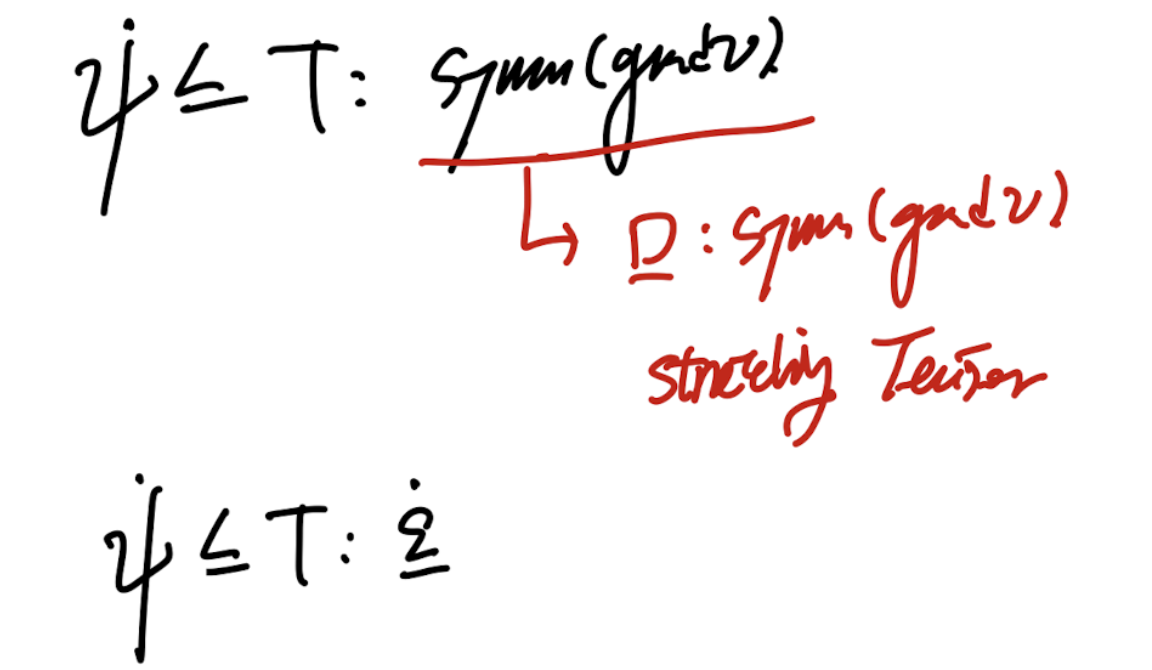 ψ̇ ≤ T: symm(grad v)
D: symm(grad v)
stretching Tensor
ψ̇ ≤ T: ε̇